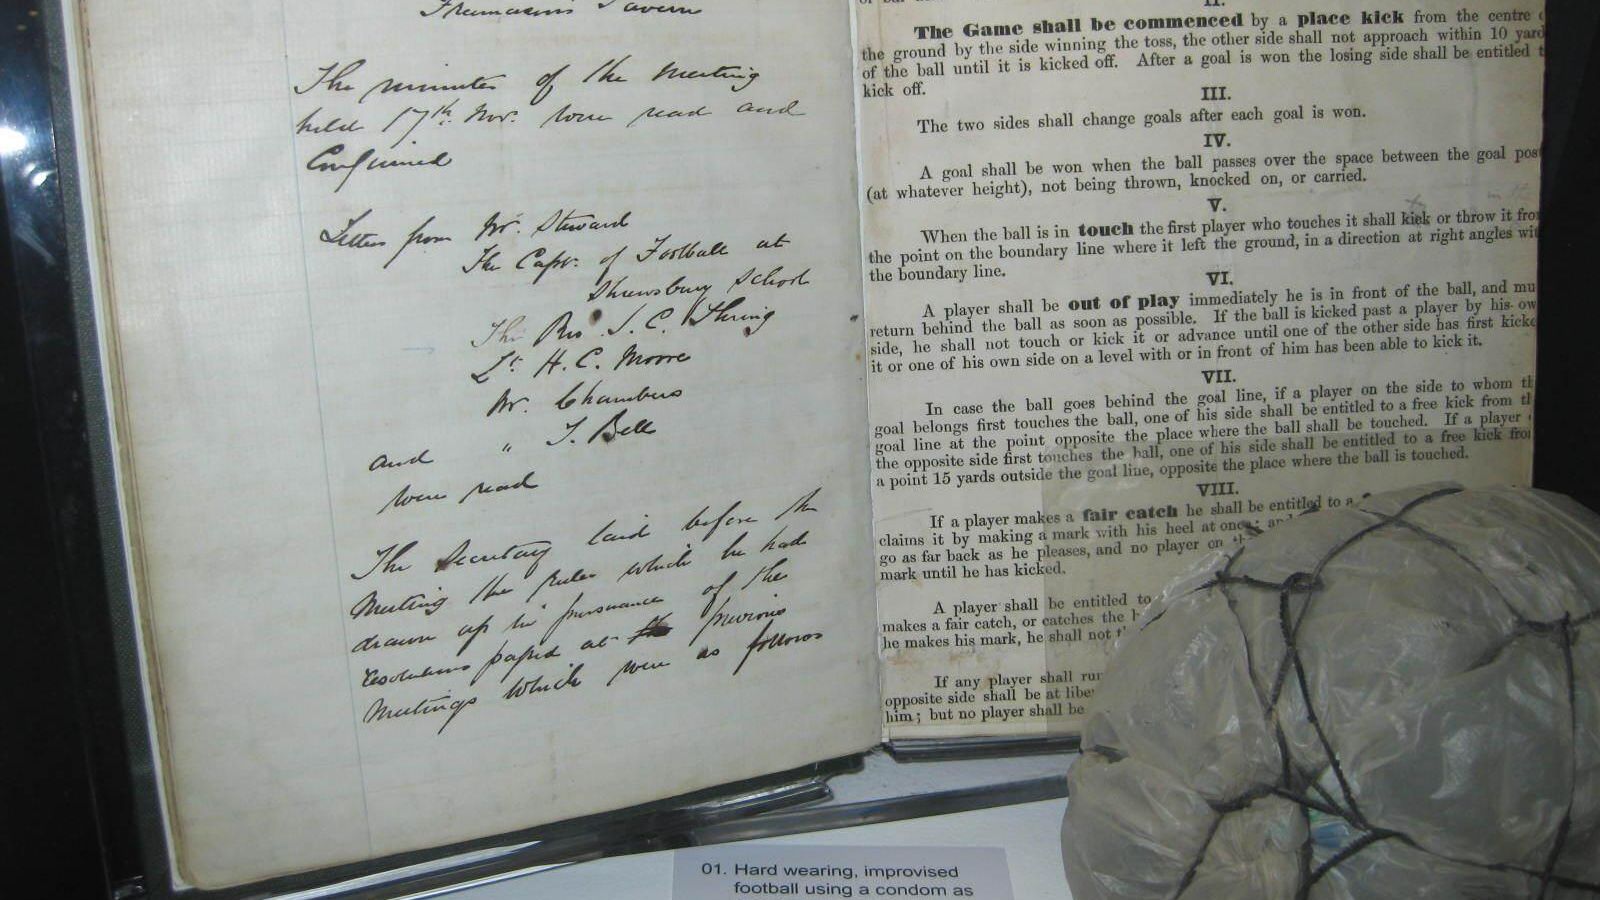 Freemason's Tavern
The minutes of the Meeting
held 17th Novr. were read and
Confirmed
Letters from Mr. Steward
The Captn. of Football at
Shrewsbury School
The Rev. J. C. Thring
Lt. H. C. Moore
Mr. Chambers
and " J. Bell
were read
The Secretary laid before the
Meeting the rules which he had
drawn up in pursuance of the
resolutions passed at previous
Meetings which were as follows
II.
The Game shall be commenced by a place kick from the centre
the ground by the side winning the toss, the other side shall not approach within 10 yard
of the ball until it is kicked off. After a goal is won the losing side shall be entitled t
kick off.
III.
The two sides shall change goals after each goal is won.
IV.
A goal shall be won when the ball passes over the space between the goal post
(at whatever height), not being thrown, knocked on, or carried.
V.
When the ball is in touch the first player who touches it shall kick or throw it from
the point on the boundary line where it left the ground, in a direction at right angles wit
the boundary line.
VI.
A player shall be out of play immediately he is in front of the ball, and mu
return behind the ball as soon as possible. If the ball is kicked past a player by his ow
side, he shall not touch or kick it or advance until one of the other side has first kicke
it or one of his own side on a level with or in front of him has been able to kick it.
VII.
In case the ball goes behind the goal line, if a player on the side to whom th
goal belongs first touches the ball, one of his side shall be entitled to a free kick from th
goal line at the point opposite the place where the ball shall be touched. If a player
the opposite side first touches the ball, one of his side shall be entitled to a free kick from
a point 15 yards outside the goal line, opposite the place where the ball is touched.
VIII.
If a player makes a fair catch he shall be entitled to a
claims it by making a mark with his heel at once; and
go as far back as he pleases, and no player on
mark until he has kicked.
A player shall be entitled to
makes a fair catch, or catches the
he makes his mark, he shall not
If any player shall run
opposite side shall be at libe
him; but no player shall be
01. Hard wearing, improvised
football using a condom as